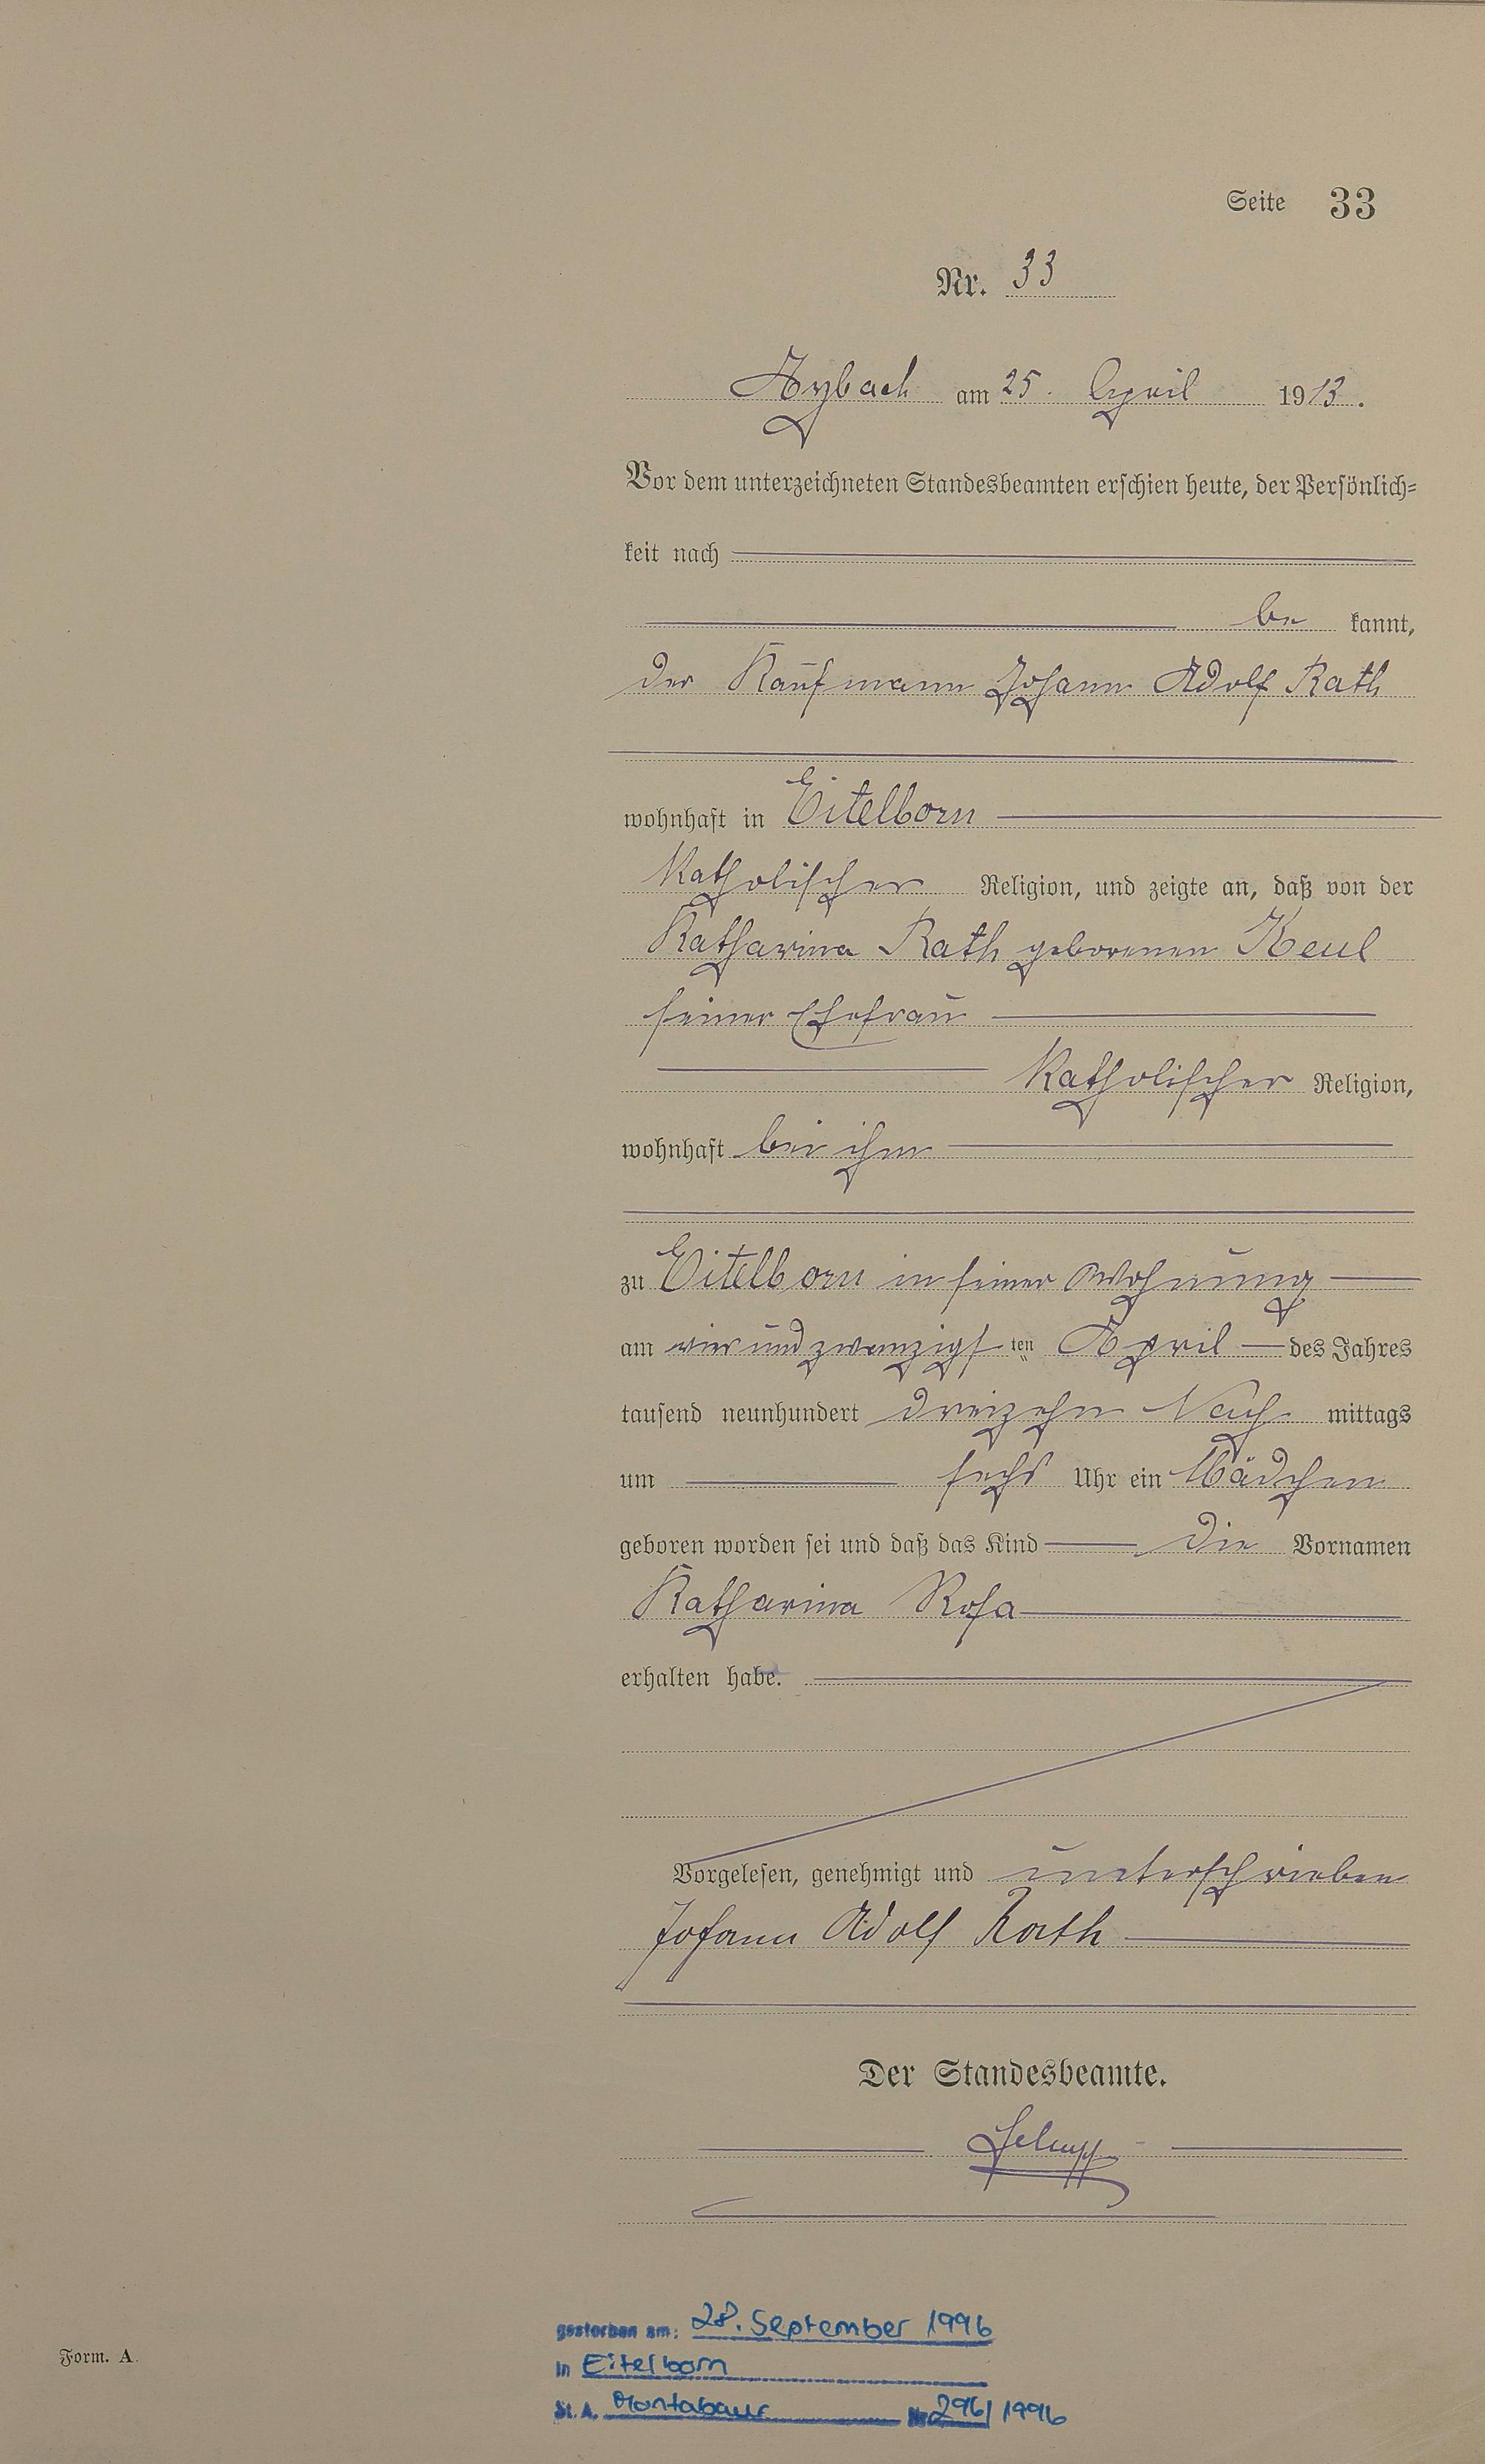 Seite 33
Nr. 33
Arzbach am 25. April 1913.
Vor dem unterzeichneten Standesbeamten erschien heute, der Persönlich-
keit nach
be kannt,
der Kaufmann Johann Adolf Rath
wohnhaft in Eitelborn
katholischer Religion, und zeigte an, daß von der
Katharina Rath geborenen Keul
seiner Ehefrau
katholischer Religion,
wohnhaft bei ihm
zu Eitelborn in seiner Wohnung
am vier und zwanzigsten April des Jahres
tausend neunhundert dreizehn Nach mittags
um sechs Uhr ein Mädchen
geboren worden sei und daß das Kind die Vornamen
Katharina Rosa
erhalten habe.
Vorgelesen, genehmigt und unterschrieben
Johann Adolf Rath
Der Standesbeamte.
gestorben am: 28. September 1996
in Eitelborn
St. A. Montabaur Nr. 296/1996
Form. A.